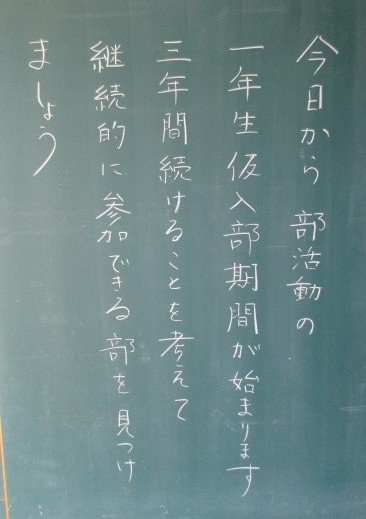 今日から 部活動の
一年生 仮入部期間が始まります
三年間続けることを考えて
継続的に参加できる部を見つけ
ましょう